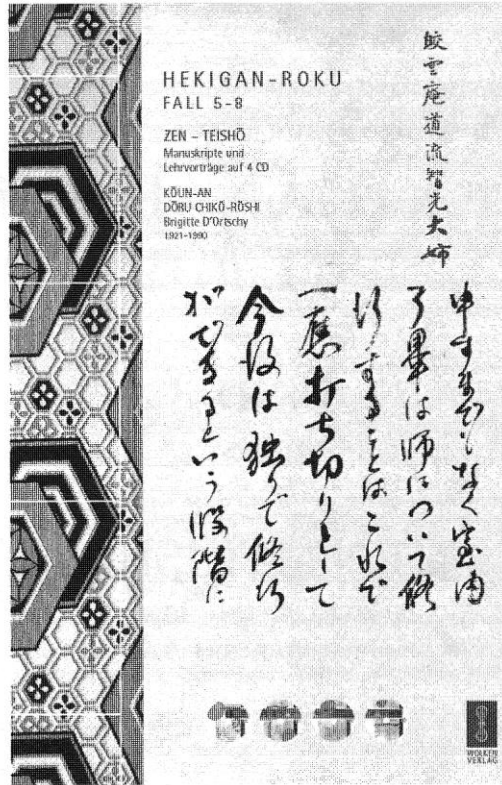 HEKIGAN-ROKU
FALL 5-8
ZEN – TEISHŌ
Manuskripte und
Lehrvorträge auf 4 CD
KŌUN-AN
DŌRU CHIKŌ-RŌSHI
Brigitte D'Ortschy
1921-1990
皎雲庵道流智光大姉
申すまでもなく室内
了畢は師について修
行することはこれで
一應打ち切りとして
今後は独りで修行
ができるという段階に
WOLKEN
VERLAG